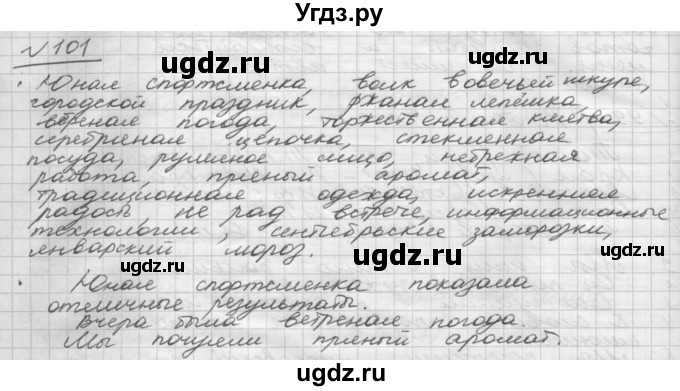 Угдз.ру
№101
Юная спортсменка, волк в овечьей шкуре,
городской праздник, ржаная лепёшка,
ветреная погода, торжественная клятва,
серебряная цепочка, стеклянная
посуда, румяное лицо, небрежная
работа, пряный аромат,
традиционная одежда, искренняя
радость, не рад встрече, информационные
технологии, сентябрьские заморозки,
январский мороз.
Юная спортсменка показала
отличные результаты.
Вчера была ветреная погода.
Мы почуяли пряный аромат.
ugdz.ru
ugdz.ru
ugdz.ru
ugdz.ru
ugdz.ru
ugdz.ru
ugdz.ru
ugdz.ru
ugdz.ru
ugdz.ru
ugdz.ru
ugdz.ru